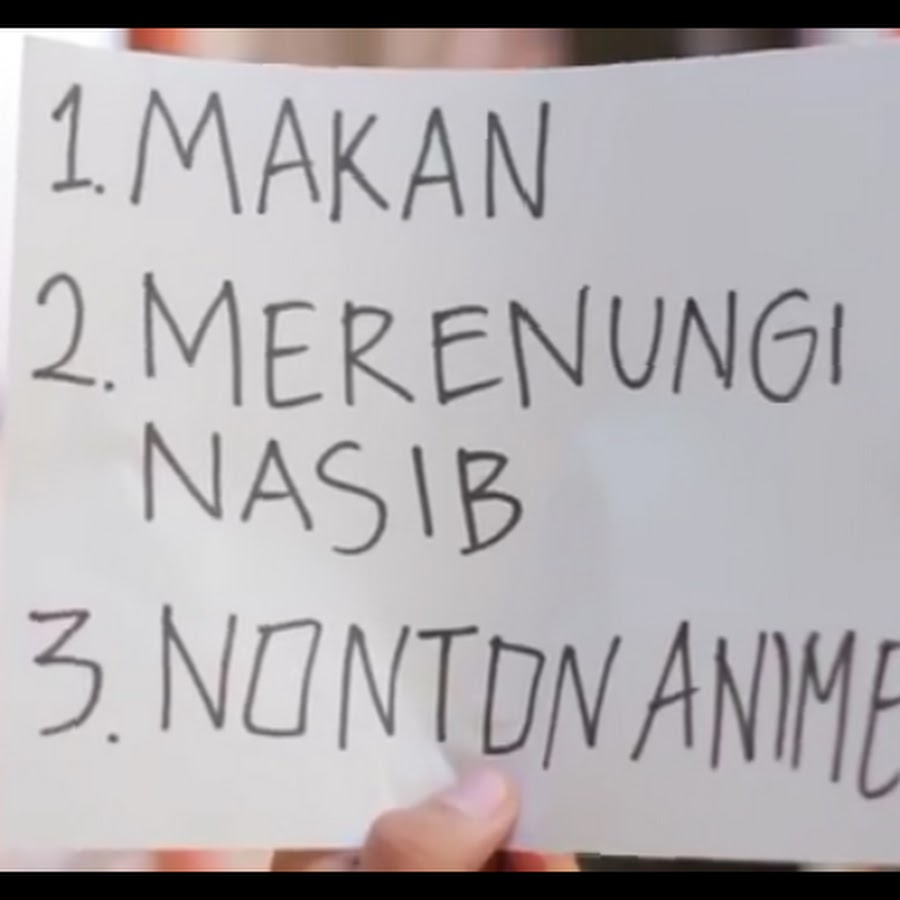 1. MAKAN
2. MERENUNGI
NASIB
3. NONTON ANIME